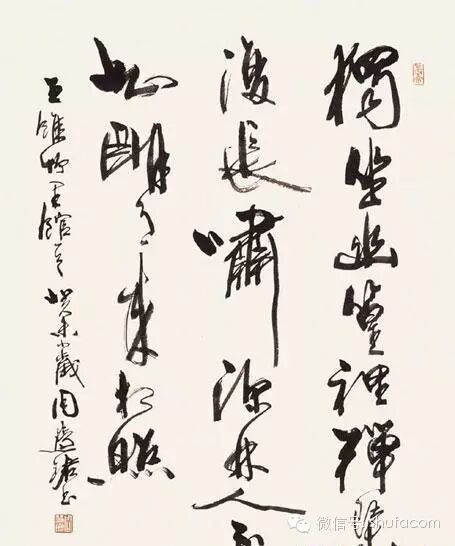 獨坐幽篁裡彈琴
復長嘯深林人不
知明月來相照
王維竹里館 癸未 歲周慧珺書
微信号: shufacom